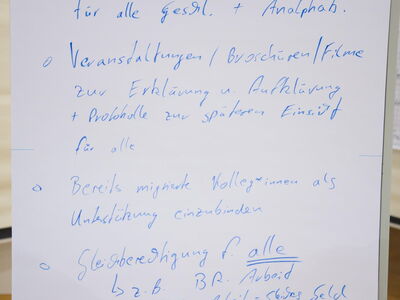 für alle Geschl. + Analphab.
o Veranstaltungen / Broschüren / Filme
zur Erklärung u. Aufklärung
+ Protokolle zur späteren Einsicht
für alle
o Bereits migrierte Kolleg*innen als
Unterstützung einzubinden
o Gleichberechtigung f. alle
↳ z.B. BR. Arbeid
Geld